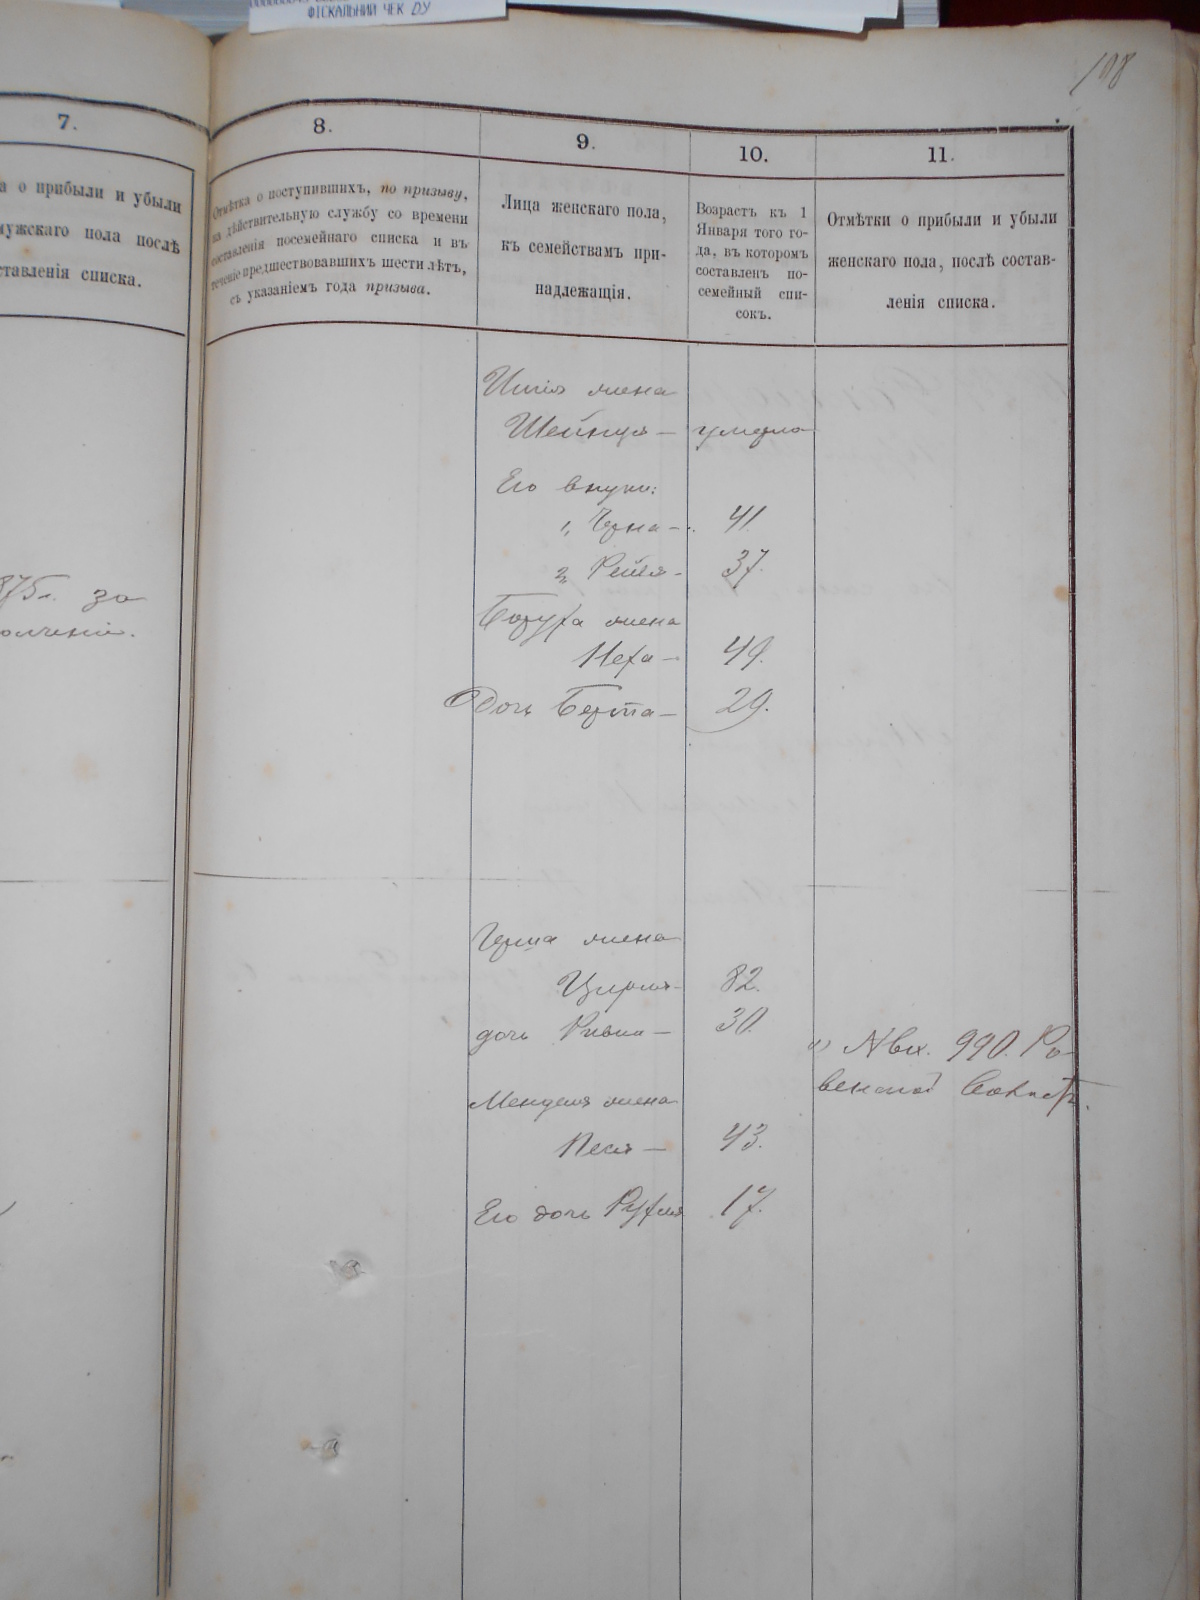 ФІСКАЛЬНИЙ ЧЕК
198
7.
а о прибыли и убыли
мужскаго пола послѣ
ставленія списка.
875г. за
8.
Отмѣтка о поступившихъ, по призыву,
на дѣйствительную службу со времени
составленія посемейнаго списка и въ
теченіе предшествовавшихъ шести лѣтъ,
съ указаніемъ года призыва.
9.
Лица женскаго пола,
къ семействамъ при-
надлежащія.
10.
Возрастъ къ 1
Января того го-
да, въ которомъ
составленъ по-
семейный спи-
сокъ.
11.
Отмѣтки о прибыли и убыли
женскаго пола, послѣ состав-
ленія списка.
жена
Шейндля — умерла
Его внуки:
1, Черна — 41.
2, Рейзя — 37.
Боруха жена
Неха — 49.
Дочь Берта — 29.
Герша жена
Цирля — 82.
дочь Ривка — 30.
№ вх. 990. Ро-
венской
Менделя жена
Песя — 43.
Его дочь Рухля 17.